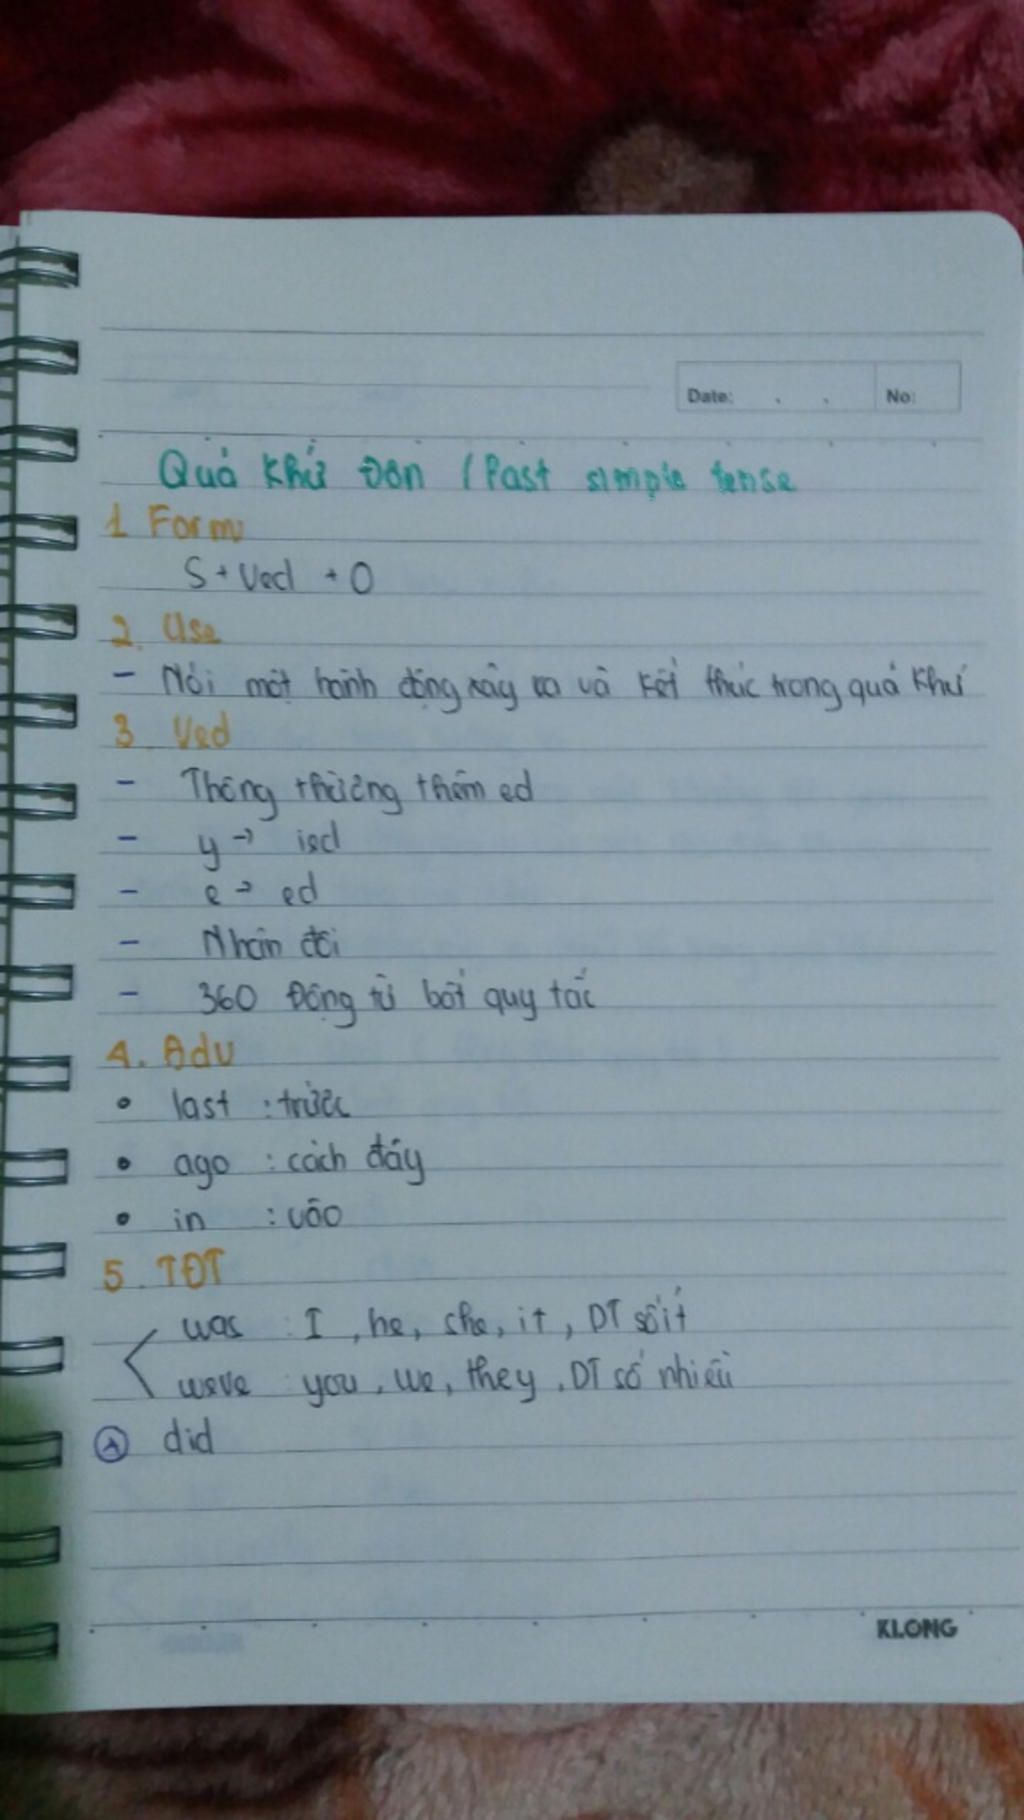 Date: . . No:
Quá khứ đơn / Past simple tense
1 Form
S + Ved + O
2. Use
- Nói một hành động xảy ra và kết thúc trong quá khứ
3. Ved
- Thông thường thêm ed
- y → ied
- e → ed
- Nhân đôi
- 360 Động từ bất quy tắc
4. Adv
• last : trước
• ago : cách đây
• in : vào
5. TĐT
was : I, he, she, it, DT số ít
were : you, we, they, DT số nhiều
did
KLONG